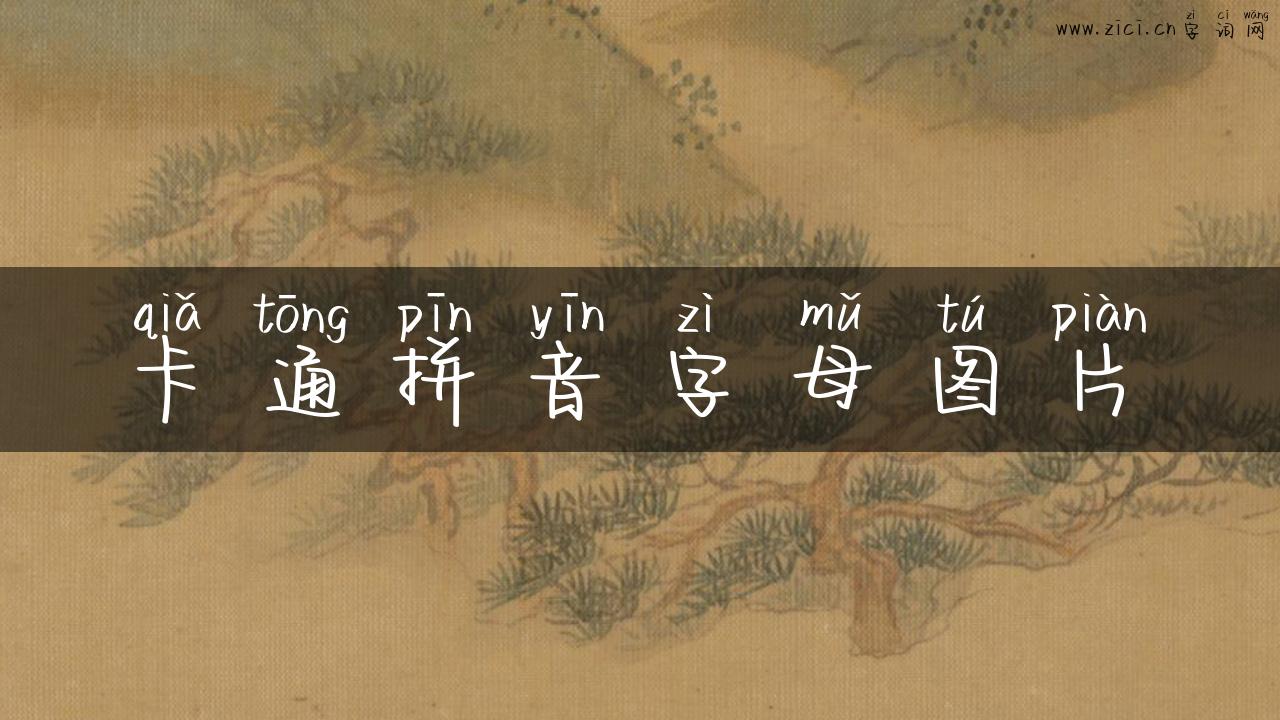 zì cí wǎng
www.zici.cn 字 词 网
qiǎ tōng pīn yīn zì mǔ tú piàn
卡 通 拼 音 字 母 图 片